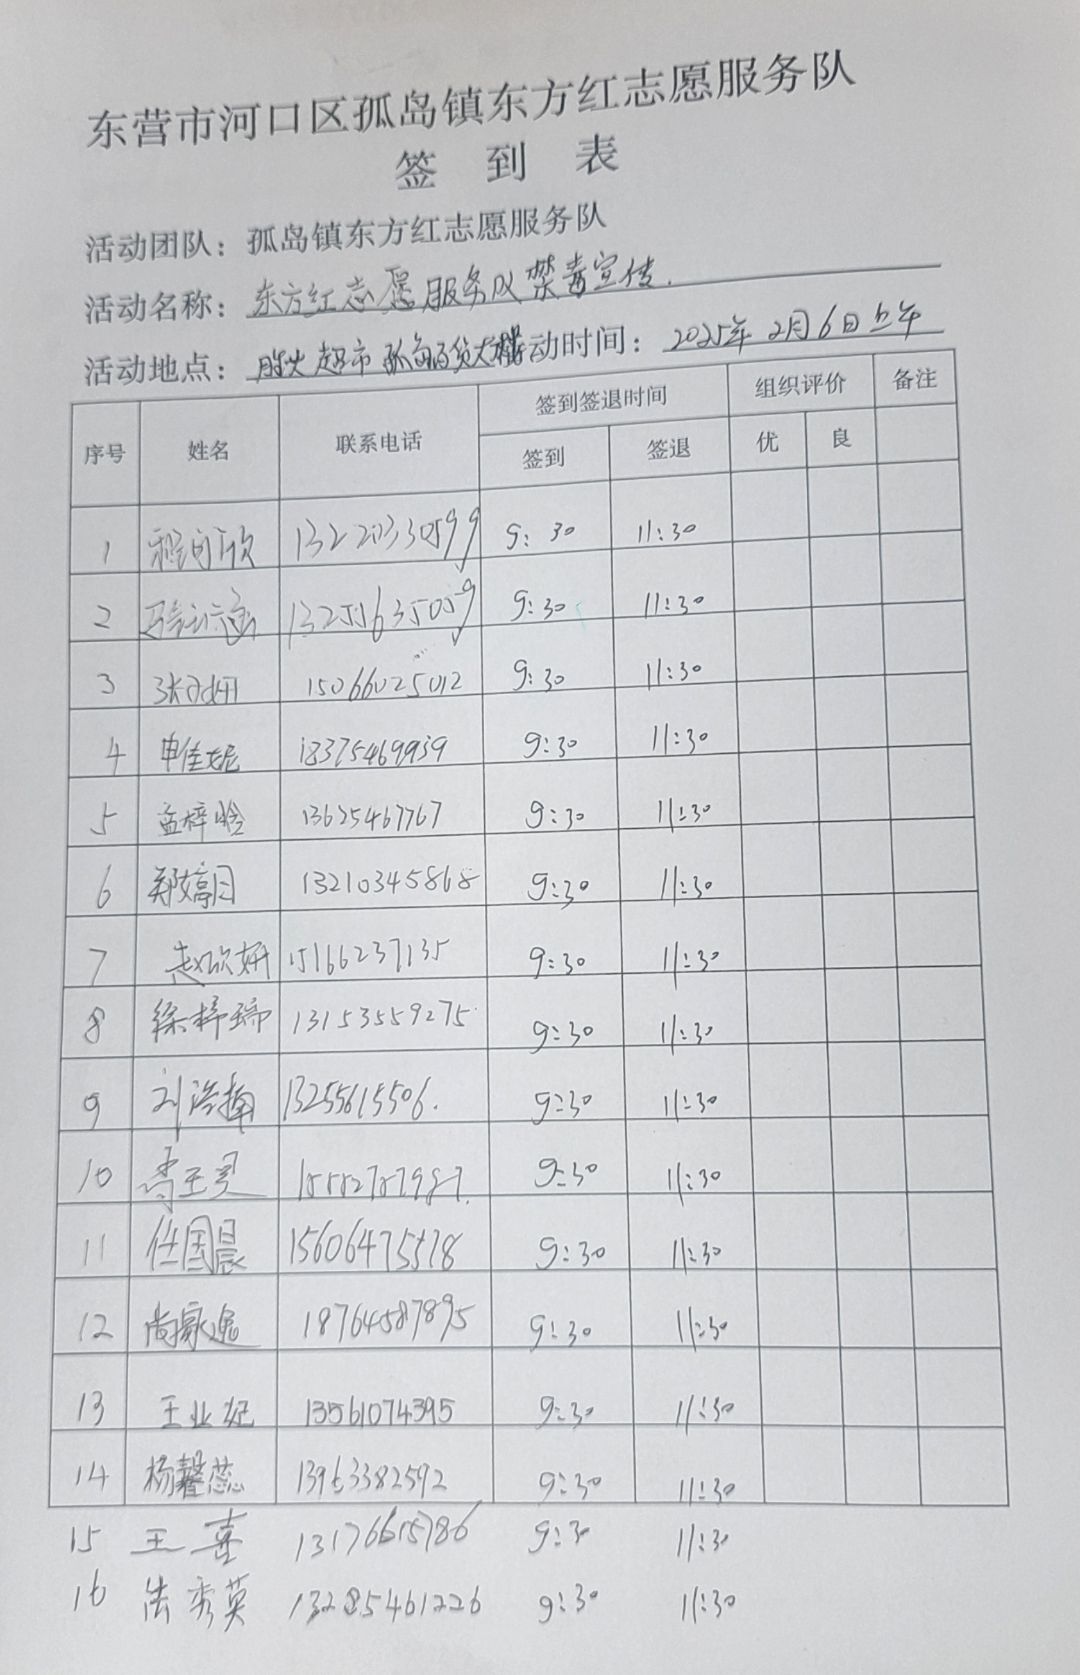 东营市河口区孤岛镇东方红志愿服务队
签 到 表
活动团队：孤岛镇东方红志愿服务队
活动名称：东方红志愿服务队禁毒宣传.
活动地点：胜大超市 孤岛百货大楼 活动时间：2025年2月6日上午
序号 姓名 联系电话 签到签退时间 组织评价 备注
签到 签退 优 良
1 13220330599 9:30 11:30
2 13255635059 9:30 11:30
3 15066025012 9:30 11:30
4 申佳妮 18375469939 9:30 11:30
5 孟梓晗 13625467767 9:30 11:30
6 郑婷月 13210345868 9:30 11:30
7 赵欣妍 15166237135 9:30 11:30
8 徐梓瑞 13153559275 9:30 11:30
9 刘浩楠 13255615506. 9:30 11:30
10 9:30 11:30
11 任国晨 15606475578 9:30 11:30
12 尚家逸 18764587895 9:30 11:30
13 王业妃 13561074395 9:30 11:30
14 杨馨蕊 13963382592 9:30 11:30
15 王喜 13176615786 9:30 11:30
16 秀英 13285461226 9:30 11:30